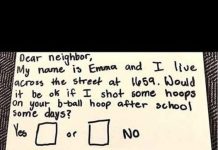 Dear neighbor,
My name is Emma and I live
across the street at 1659. Would
it be ok if I shot some hoops
on your b-ball hoop after school
some days?
Yes or NO